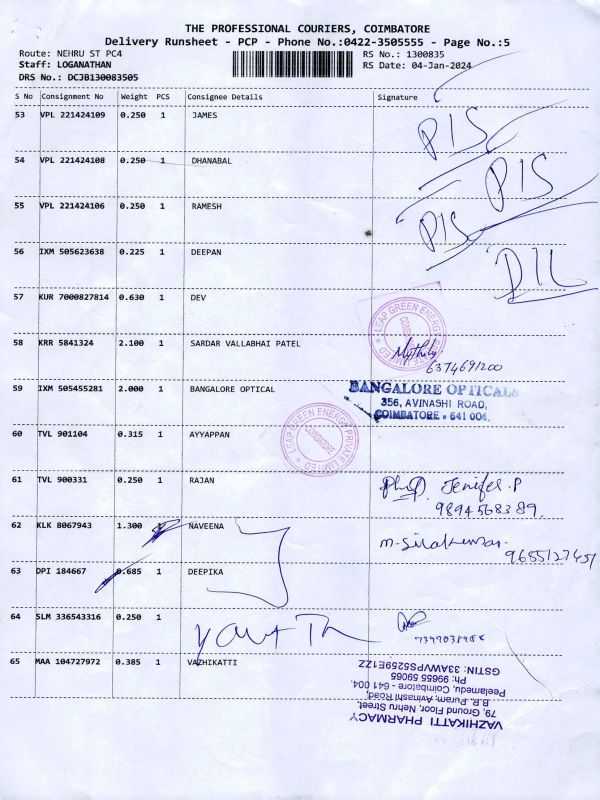 THE PROFESSIONAL COURIERS, COIMBATORE
Delivery Runsheet - PCP - Phone No.:0422-3505555 - Page No.:5
Route: NEHRU ST PC4 RS No.: 1300835
Staff: LOGANATHAN RS Date: 04-Jan-2024
DRS No.: DCJB130083505
S No Consignment No Weight PCS Consignee Details Signature
53 VPL 221424109 0.250 1 JAMES
PIS
54 VPL 221424108 0.250 1 DHANABAL
PIS
55 VPL 221424106 0.250 1 RAMESH
PIS
56 IXM 505623638 0.225 1 DEEPAN
57 KUR 7000827814 0.630 1 DEV
LEAP GREEN ENERGY PRIVATE LIMITED
COIMBATORE
58 KRR 5841324 2.100 1 SARDAR VALLABHAI PATEL
Mythily
6374691200
59 IXM 505455281 2.000 1 BANGALORE OPTICAL
BANGALORE OPTICALS
356, AVINASHI ROAD,
COIMBATORE - 641 004.
60 TVL 901104 0.315 1 AYYAPPAN
LEAP GREEN ENERGY PRIVATE LIMITED
COIMBATORE
61 TVL 900331 0.250 1 RAJAN
Jenifer. P
9894568389.
62 KLK 8067943 1.300 1 NAVEENA
9655127451
63 DPI 184667 0.685 1 DEEPIKA
64 SLM 336543316 0.250 1
65 MAA 104727972 0.385 1 VAZHIKATTI
VAZHIKATTI PHARMACY
79, Ground Floor, Nehru Street,
B.R. Puram, Avinashi Road,
Peelamedu, Coimbatore - 641 004.
Ph: 99655 59065
GSTIN: 33AWVPS5259E1ZZ